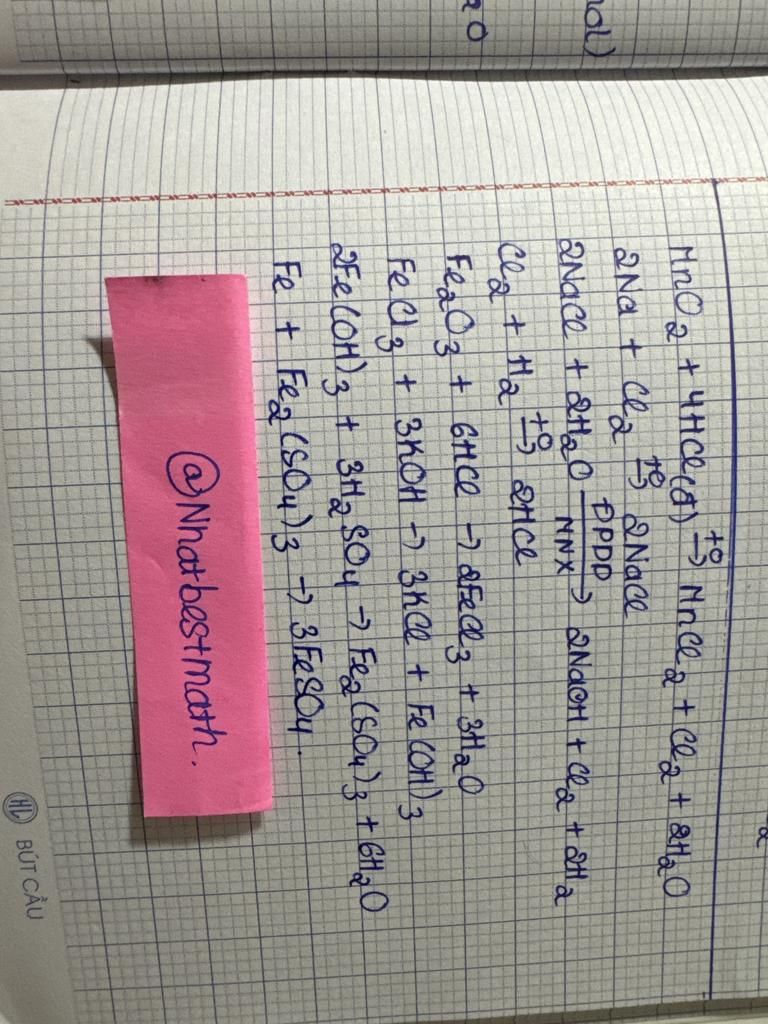 mol)
20
MnO₂ + 4HCl(đ) t°→ MnCl₂ + Cl₂ + 2H₂O
2Na + Cl₂ t°→ 2NaCl
2NaCl + 2H₂O ĐPDD→ MNX 2NaOH + Cl₂ + 2H₂
Cl₂ + H₂ t°→ 2HCl
Fe₂O₃ + 6HCl → 2FeCl₃ + 3H₂O
FeCl₃ + 3KOH → 3KCl + Fe(OH)₃
2Fe(OH)₃ + 3H₂SO₄ → Fe₂(SO₄)₃ + 6H₂O
Fe + Fe₂(SO₄)₃ → 3FeSO₄.
@Nhatbestmath.
HL BÚT CÂU